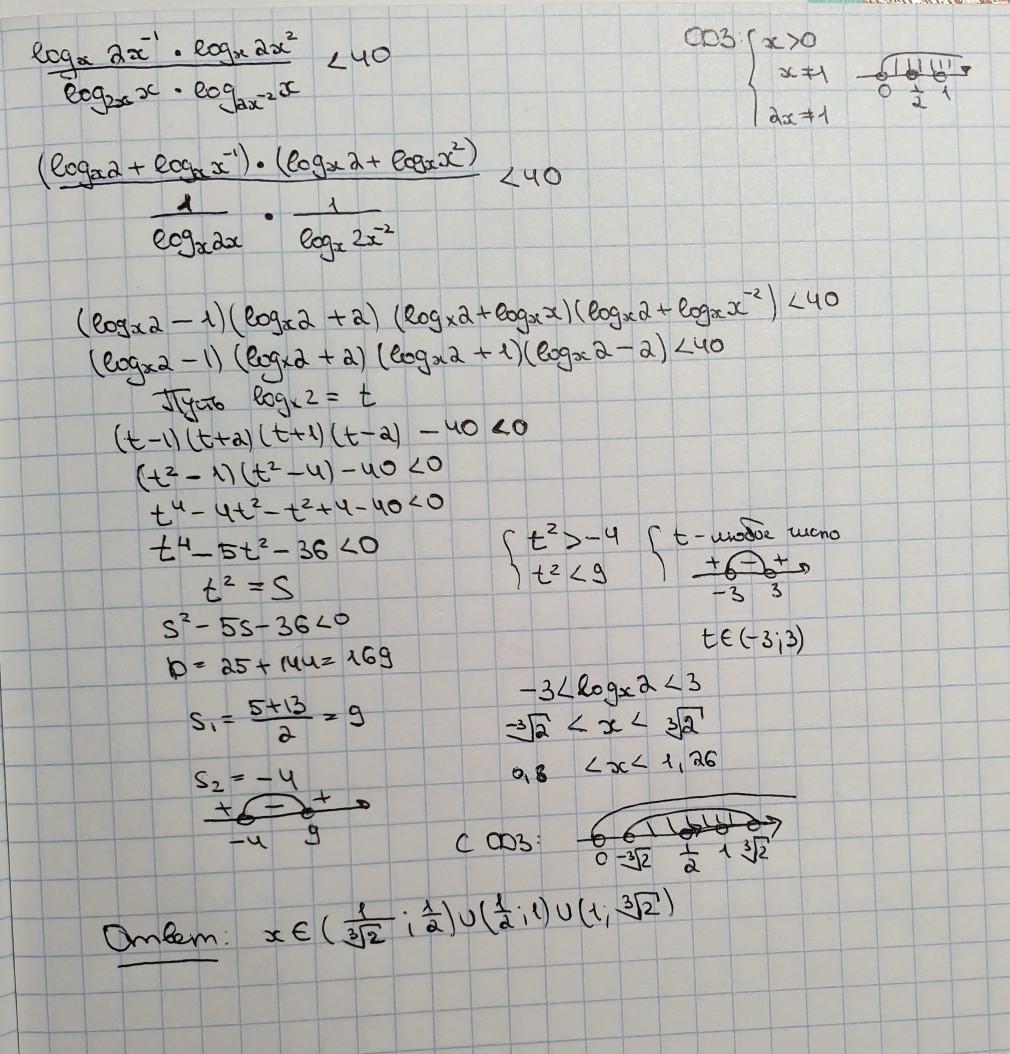 log_x 2x⁻¹ · log_x 2x² / log_2x x · log_2x⁻² x < 40
ОДЗ: { x>0
x≠1
2x≠1
0 1/2 1
(log_x 2 + log_x x⁻¹) · (log_x 2 + log_x x²) / (1/log_x 2x · 1/log_x 2x⁻²) < 40
(log_x 2 - 1)(log_x 2 + 2)(log_x 2 + log_x x)(log_x 2 + log_x x⁻²) < 40
(log_x 2 - 1)(log_x 2 + 2)(log_x 2 + 1)(log_x 2 - 2) < 40
Пусть log_x 2 = t
(t-1)(t+2)(t+1)(t-2) - 40 < 0
(t² - 1)(t² - 4) - 40 < 0
t⁴ - 4t² - t² + 4 - 40 < 0
t⁴ - 5t² - 36 < 0
t² = S
S² - 5S - 36 < 0
D = 25 + 144 = 169
S₁ = (5+13)/2 = 9
S₂ = -4
+ - +
-4 9
{ t² > -4
t² < 9
{ t - любое число
+ - +
-3 3
t ∈ (-3; 3)
-3 < log_x 2 < 3
-³√2 < x < ³√2
0,8 < x < 1,26
С ОДЗ:
0 -³√2 1/2 1 ³√2
Ответ: x ∈ (1/³√2 ; 1/2) ∪ (1/2 ; 1) ∪ (1; ³√2)